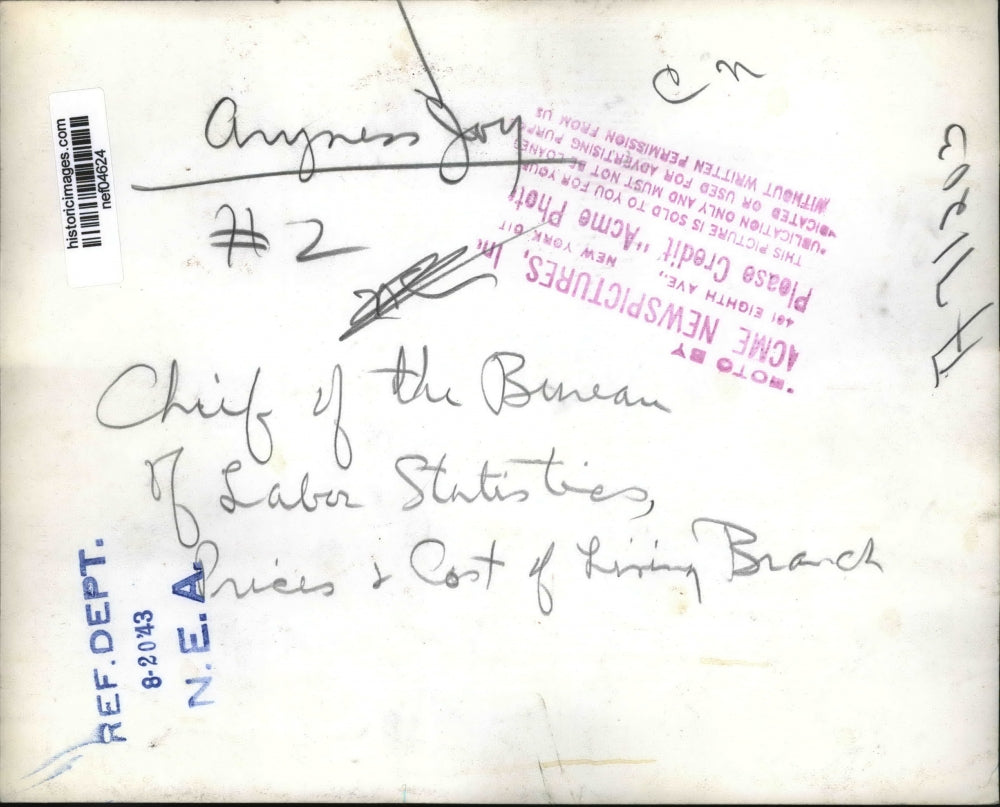 C n
Aryness Joy
# 2
Chief of the Bureau
of Labor Statistics,
Prices & Cost of Living Branch
historicimages.com
nef04624
REF. DEPT.
8-20 '43
N. E. A.
HOTO BY
ACME NEWSPICTURES, In
461 EIGHTH AVE., NEW YORK CIT
Please Credit "Acme Phot
THIS PICTURE IS SOLD TO YOU FOR YOUR
PUBLICATION ONLY AND MUST NOT BE LOANED
DICATED OR USED FOR ADVERTISING PURP
WITHOUT WRITTEN PERMISSION FROM US